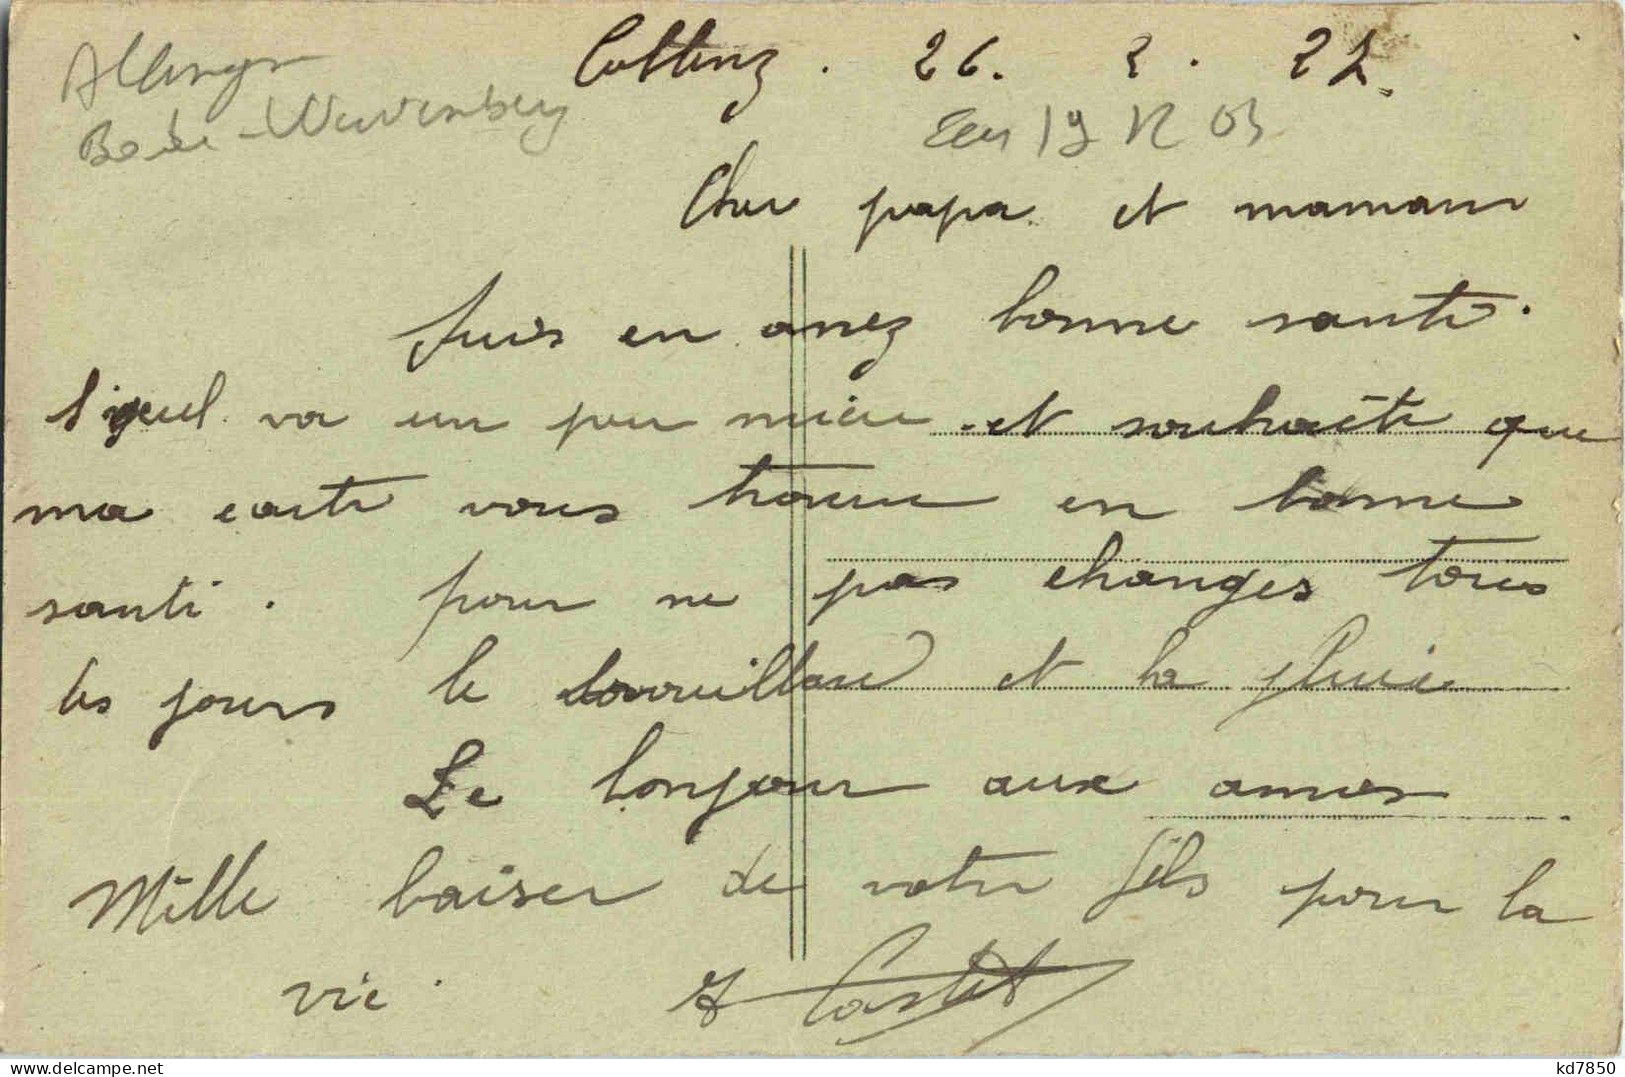 Bade-Wurtemberg
26. 2. 22.
19 12 03
Cher papa et maman
suis en assez bonne santé.
va un peu mieu et souhaite que
ma carte vous trouve en bonne
santé. pour ne pas changes tous
les jours le brouillard et la pluie
Le bonjour aux amies
Mille baiser de votre fils pour la
vie.
Castet
kd7850